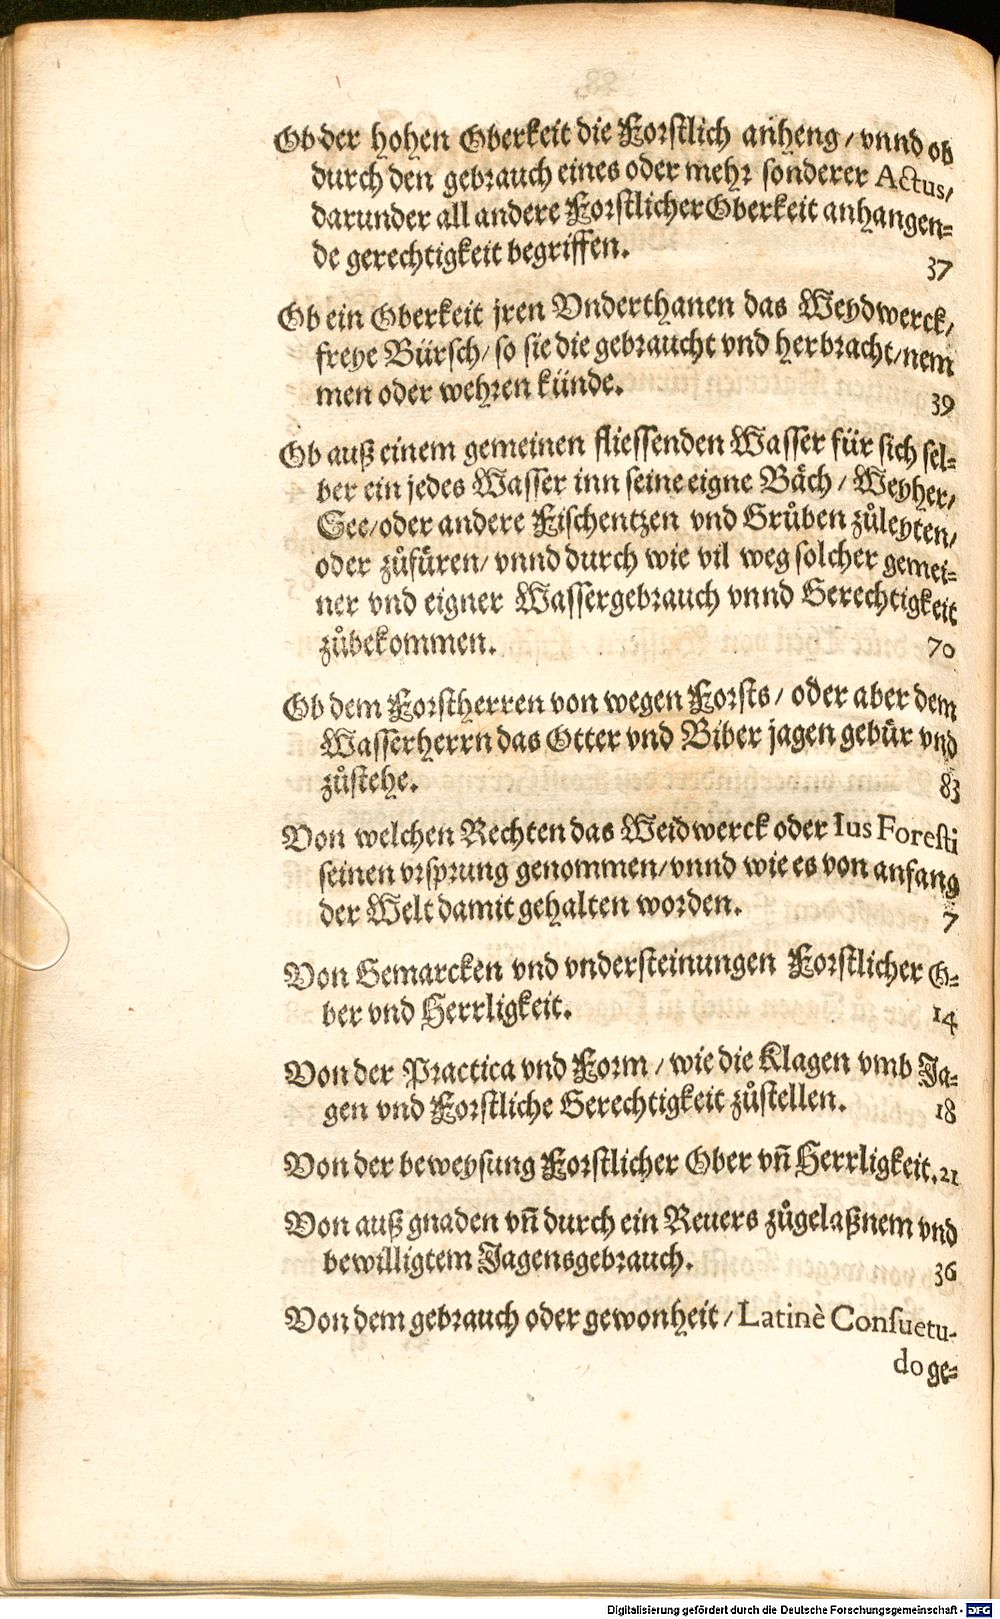 Ob der hohen Oberkeit die Forstlich anheng / vnnd ob
durch den gebrauch eines oder mehr sonderer Actus,
darunder all andere Forstlicher Oberkeit anhangen⸗
de gerechtigkeit begriffen. 37
Ob ein Oberkeit jren Vnderthanen das Weydwerck,
freye Bürsch / so sie die gebraucht vnd herbracht / nem
men oder wehren künde. 39
Ob auß einem gemeinen fliessenden Wasser für sich sel⸗
ber ein jedes Wasser inn seine eigne Bäch / Weyher,
See / oder andere Fischentzen vnd Grůben zůleyten,
oder zůfüren / vnnd durch wie vil weg solcher gemei⸗
ner vnd eigner Wassergebrauch vnnd Gerechtigkeit
zůbekommen. 70
Ob dem Forstherren von wegen Forsts / oder aber dem
Wasserherrn das Otter vnd Biber jagen gebür vnd
zůstehe. 83
Von welchen Rechten das Weidwerck oder Ius Foresti
seinen vrsprung genommen / vnnd wie es von anfang
der Welt damit gehalten worden. 7
Von Gemarcken vnd vndersteinungen Forstlicher O⸗
ber vnd Herrligkeit. 14
Von der Practica vnd Form / wie die Klagen vmb Ja⸗
gen vnd Forstliche Gerechtigkeit zůstellen. 18
Von der beweysung Forstlicher Ober vn̄ Herrligkeit. 21
Von auß gnaden vn̄ durch ein Reuers zůgelaßnem vnd
bewilligtem Jagensgebrauch. 36
Von dem gebrauch oder gewonheit / Latinè Consuetu-
do ge⸗
Digitalisierung gefördert durch die Deutsche Forschungsgemeinschaft - DFG